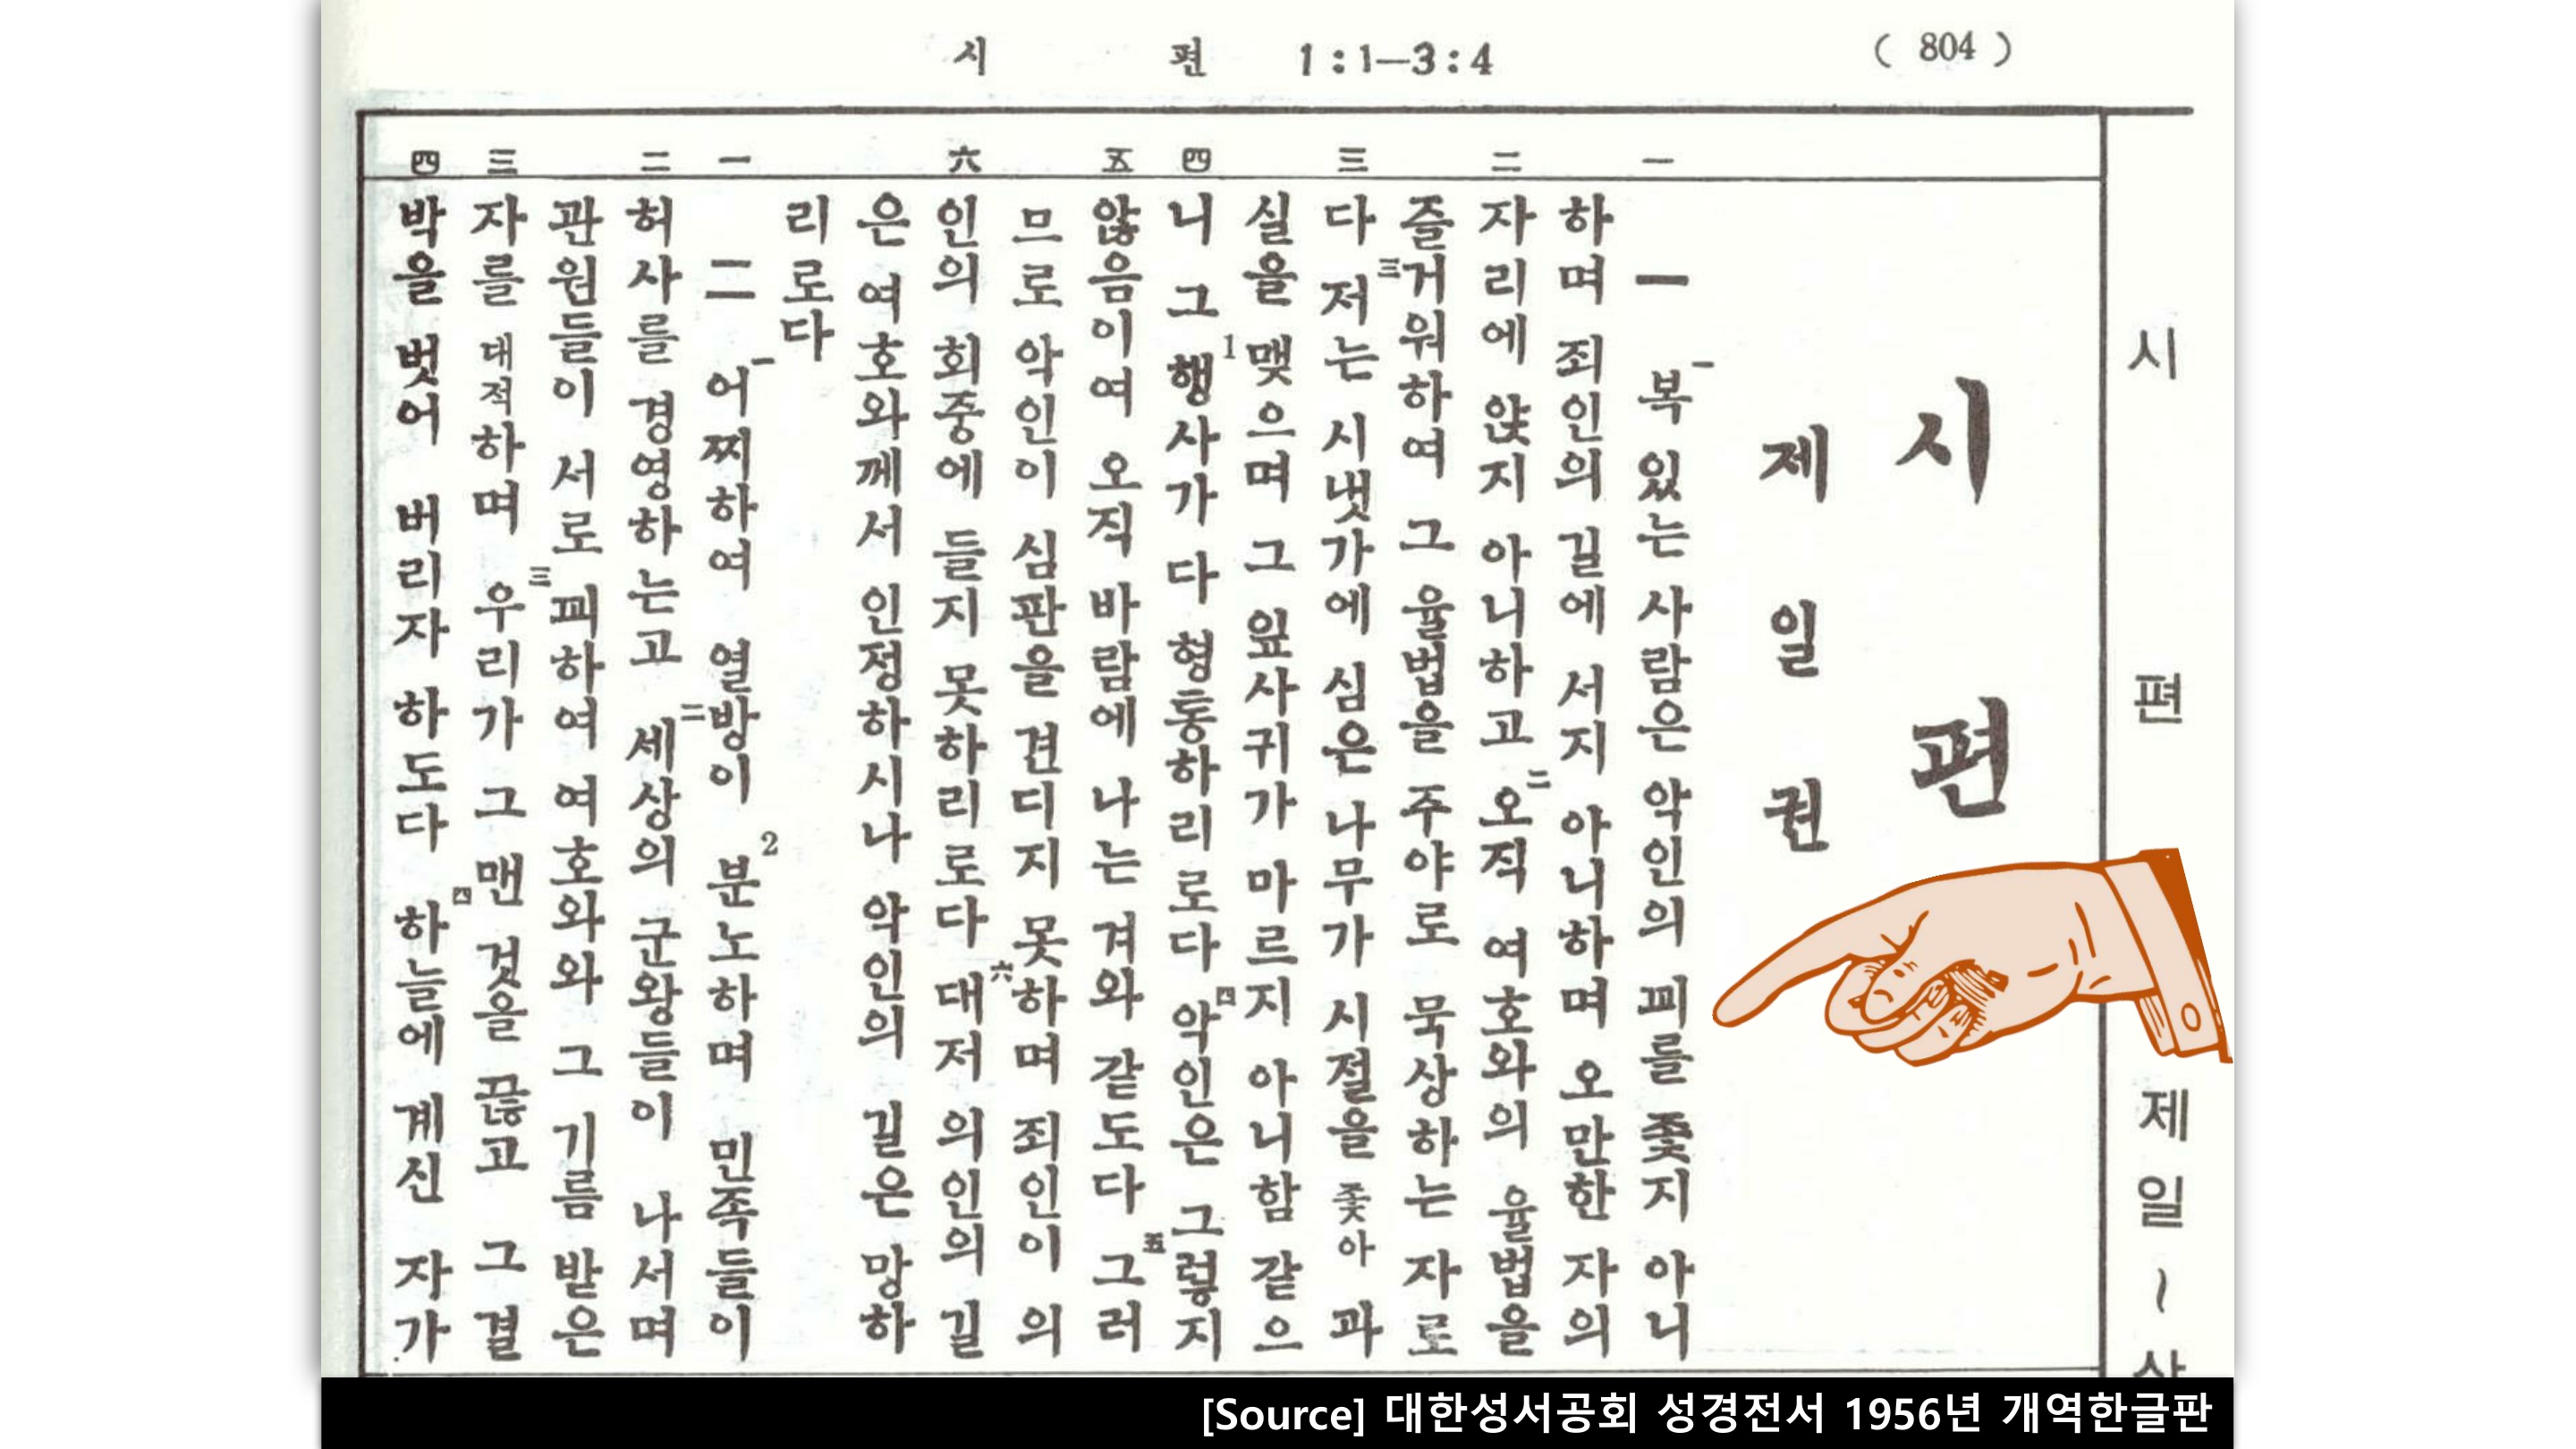 시 편 1:1—3:4 ( 804 )
시 편 제일~삼
시 편
제 일 권
一
一 一복 있는 사람은 악인의 꾀를 좇지 아니
하며 죄인의 길에 서지 아니하며 오만한 자의
二
자리에 앉지 아니하고 二오직 여호와의 율법을
즐거워하여 그 율법을 주야로 묵상하는 자로
三
다 三저는 시냇가에 심은 나무가 시절을 좇아 과
실을 맺으며 그 잎사귀가 마르지 아니함 같으
四
니 그 1행사가 다 형통하리로다 四악인은 그렇지
五
않음이여 오직 바람에 나는 겨와 같도다 五그러
므로 악인이 심판을 견디지 못하며 죄인이 의
六
인의 회중에 들지 못하리로다 六대저 의인의 길
은 여호와께서 인정하시나 악인의 길은 망하
리로다
一
二 一어찌하여 열방이 2분노하며 민족들이
二
허사를 경영하는고 二세상의 군왕들이 나서며
관원들이 서로 꾀하여 여호와와 그 기름 받은
三
자를 대적하며 三우리가 그 맨 것을 끊고 그 결
四
박을 벗어 버리자 하도다 四하늘에 계신 자가
[Source] 대한성서공회 성경전서 1956년 개역한글판